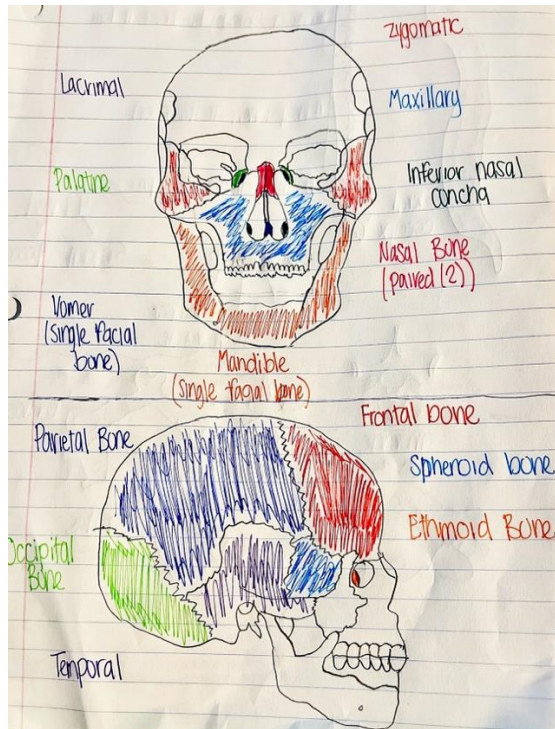 Zygomatic
Lacrimal
Maxillary
Palatine
Inferior nasal
concha
Nasal Bone
(paired (2))
Vomer
(single facial
bone)
Mandible
(single facial bone)
Frontal bone
Parietal Bone
Spheroid bone
Ethmoid Bone
Occipital
Bone
Temporal